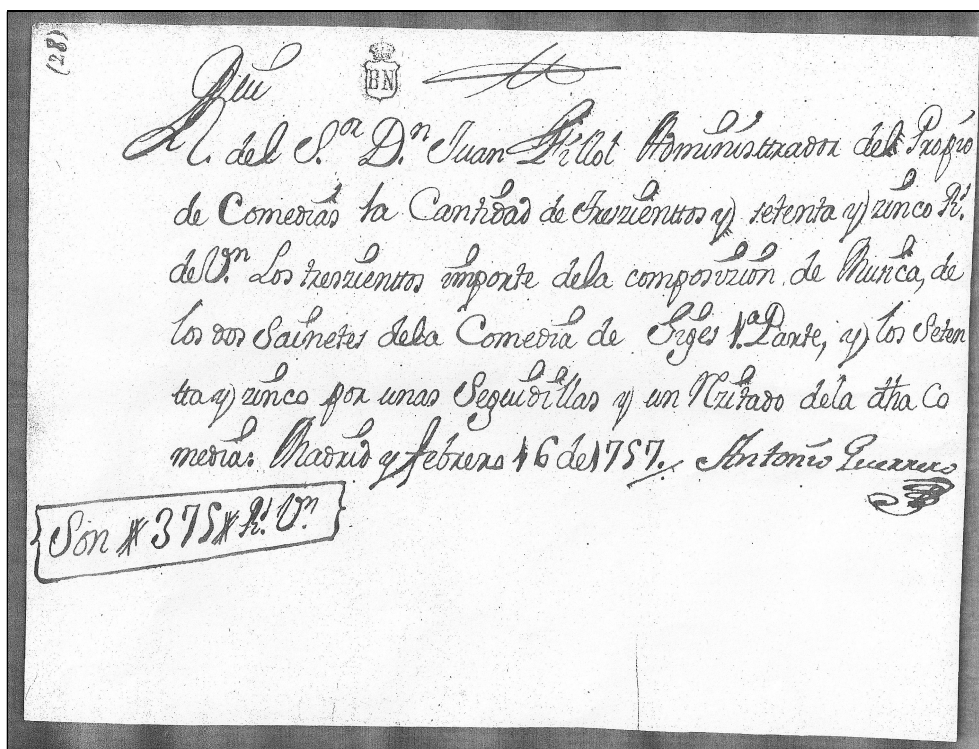 (28)
BN
Reciví
del S.or D.n Juan Pillot Administrador del Propio
de Comedias la Cantidad de Treszientos y setenta y zinco R.s
de V.n Los treszientos importe dela composizion de Musica, de
los dos Sainetes dela Comedia de Giges 1.a Parte, y los Seten
tta y zinco por unas Seguidillas y un Rzitado dela dha Co
media. Madrid y febrero 16 de 1757. Antonio Guerrero
Son # 375 # R.s V.n